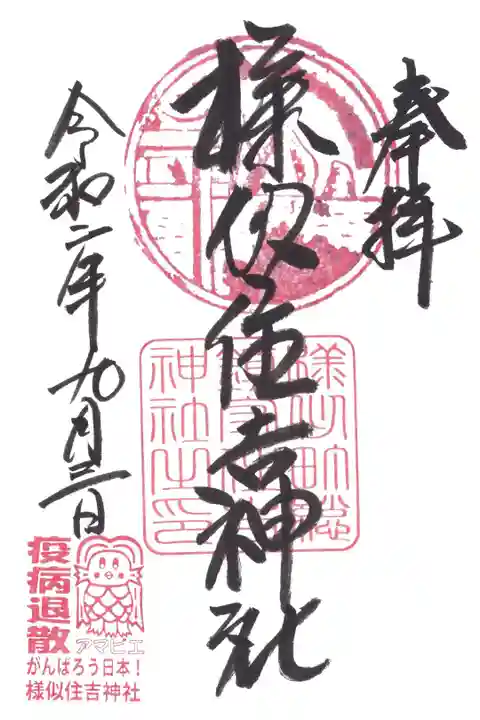 奉拝
様似住吉神社
令和二年九月三日
疫病退散
アマビエ
がんばろう日本！
様似住吉神社